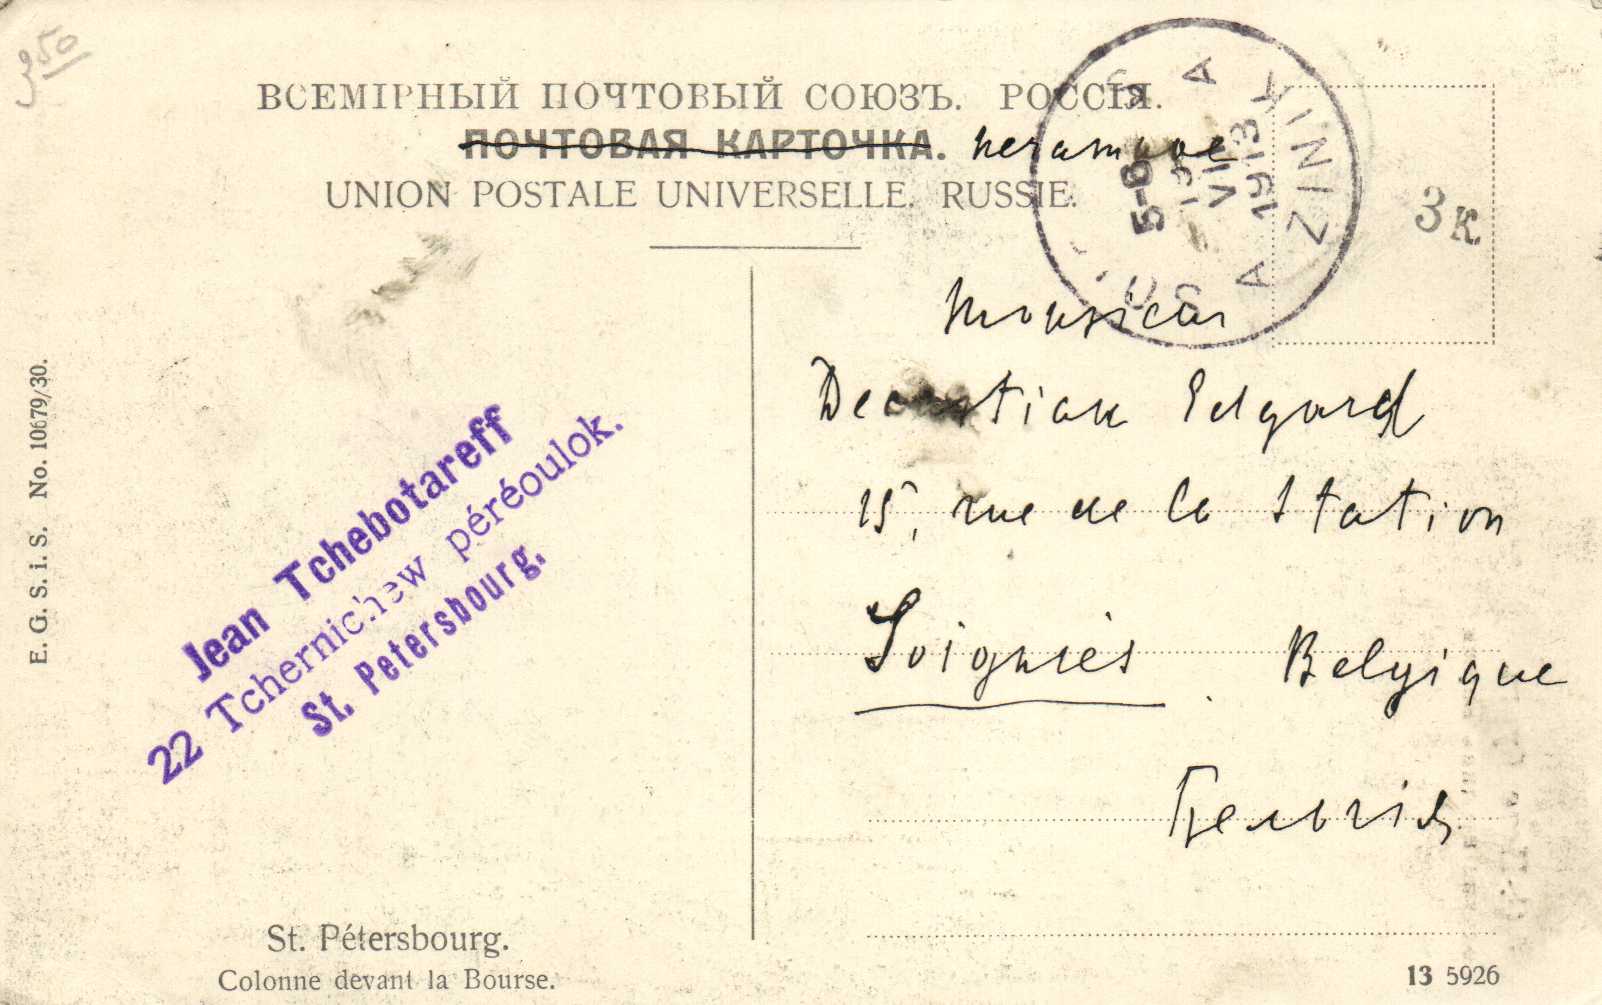 3 50
ВСЕМІРНЫЙ ПОЧТОВЫЙ СОЮЗЪ. РОССІЯ.
ПОЧТОВАЯ КАРТОЧКА. печатное
UNION POSTALE UNIVERSELLE. RUSSIE.
5-6
VII
1913
ZINIK
3 к.
Monsieur
Edgard
15, rue de la Station
Soignies Belgique
Бельгія
Jean Tchebotareff
22 Tchernichew péréoulok.
St. Petersbourg.
E. G. S. i. S. No. 10679/30.
St. Pétersbourg.
Colonne devant la Bourse.
13 5926